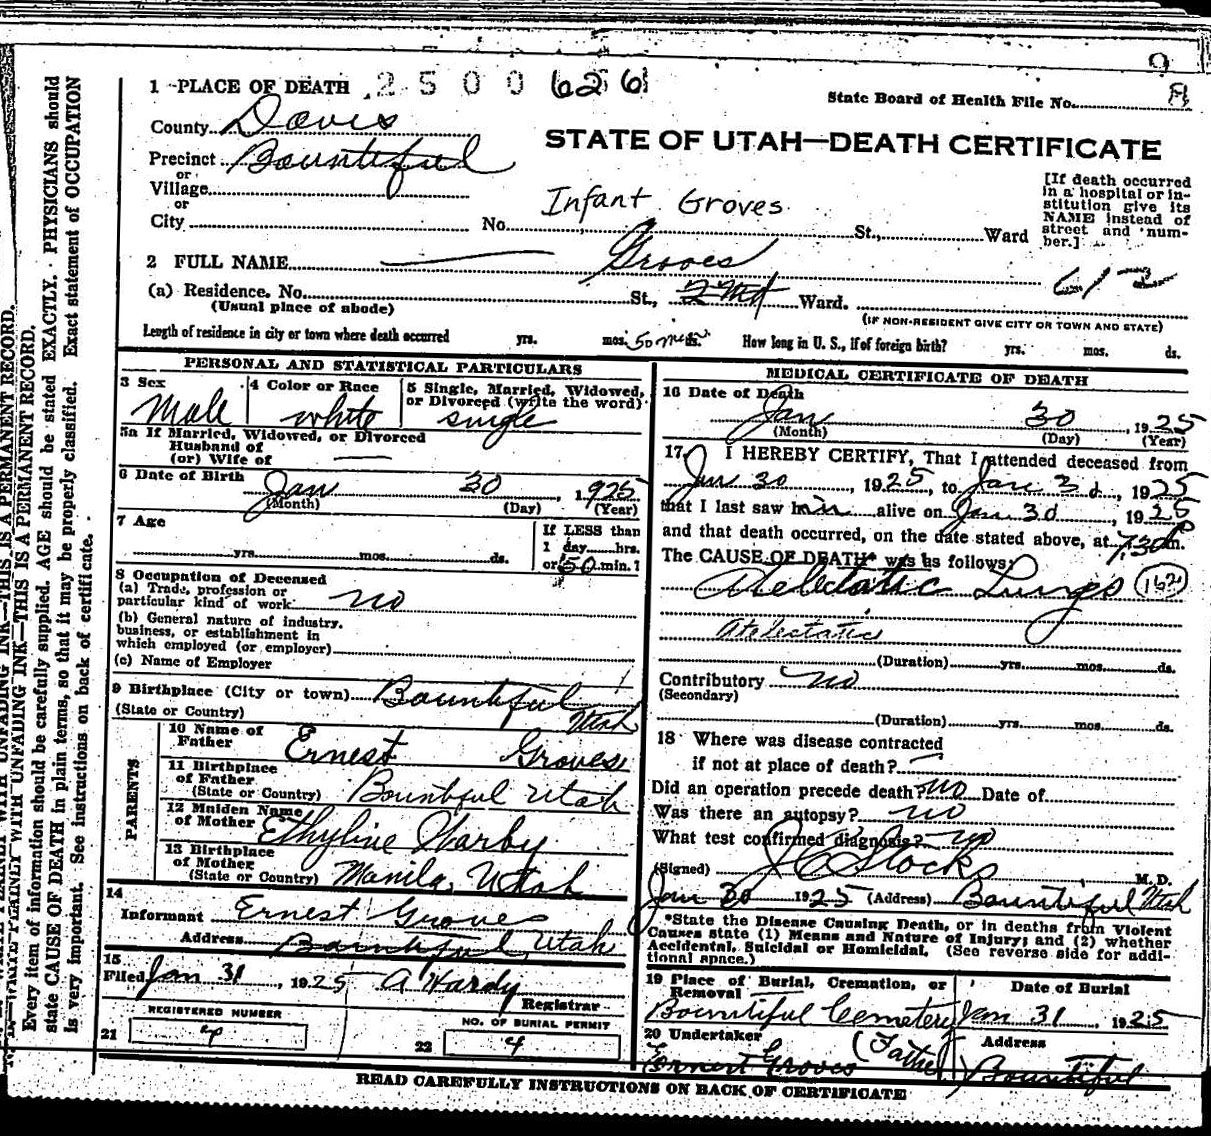 1 PLACE OF DEATH 2500626
State Board of Health File No. 
County Davis
STATE OF UTAH—DEATH CERTIFICATE
Precinct Bountiful
or
Village
or
City No. St., Ward
Infant Groves
[If death occurred
in a hospital or in-
stitution give its
NAME instead of
street and num-
ber.]
2 FULL NAME Groves
612
(a) Residence. No. St., Ward.
(Usual place of abode)
(IF NON-RESIDENT GIVE CITY OR TOWN AND STATE)
Length of residence in city or town where death occurred yrs. mos. 50 min ds. How long in U. S., if of foreign birth? yrs. mos. ds.
PERSONAL AND STATISTICAL PARTICULARS
3 Sex 4 Color or Race 5 Single, Married, Widowed,
or Divorced (write the word)
Male white single
5a If Married, Widowed, or Divorced
Husband of
(or) Wife of
6 Date of Birth Jan 30, 1925
(Month) (Day) (Year)
7 Age If LESS than
1 day hrs.
yrs. mos. ds. or 50 min.?
8 Occupation of Deceased
(a) Trade, profession or
particular kind of work no
(b) General nature of industry,
business, or establishment in
which employed (or employer)
(c) Name of Employer
9 Birthplace (City or town) Bountiful
(State or Country) Utah
PARENTS
10 Name of
Father Ernest Groves
11 Birthplace
of Father
(State or Country) Bountiful Utah
12 Maiden Name
of Mother Ethyline Harby
13 Birthplace
of Mother
(State or Country) Manila, Utah
14
Informant Ernest Groves
Address Bountiful, Utah
15
Filed Jan 31, 1925 A Hardy
Registrar
REGISTERED NUMBER NO. OF BURIAL PERMIT
21 4 22 4
MEDICAL CERTIFICATE OF DEATH
16 Date of Death
Jan 30, 1925
(Month) (Day) (Year)
17 I HEREBY CERTIFY, That I attended deceased from
Jan 30, 1925, to Jan 30, 1925
that I last saw him alive on Jan 30, 1925
and that death occurred, on the date stated above, at 7.30 P m.
The CAUSE OF DEATH* was as follows:
Atelectatic Lungs
Atelectatic
(Duration) yrs. mos. ds.
Contributory no
(Secondary)
(Duration) yrs. mos. ds.
18 Where was disease contracted
if not at place of death?
Did an operation precede death? no Date of
Was there an autopsy? no
What test confirmed diagnosis? no
(Signed) J C Stocks, M. D.
Jan 30 1925 (Address) Bountiful Utah
*State the Disease Causing Death, or in deaths from Violent
Causes state (1) Means and Nature of Injury; and (2) whether
Accidental, Suicidal or Homicidal. (See reverse side for addi-
tional space.)
19 Place of Burial, Cremation, or
Removal Date of Burial
Bountiful Cemetery Jan 31, 1925
20 Undertaker Address
Ernest Groves (Father) Bountiful
READ CAREFULLY INSTRUCTIONS ON BACK OF CERTIFICATE
Every item of information should be carefully supplied. AGE should be stated EXACTLY. PHYSICIANS should
state CAUSE OF DEATH in plain terms, so that it may be properly classified. Exact statement of OCCUPATION
is very important. See instructions on back of certificate.
WRITE PLAINLY WITH UNFADING INK—THIS IS A PERMANENT RECORD.